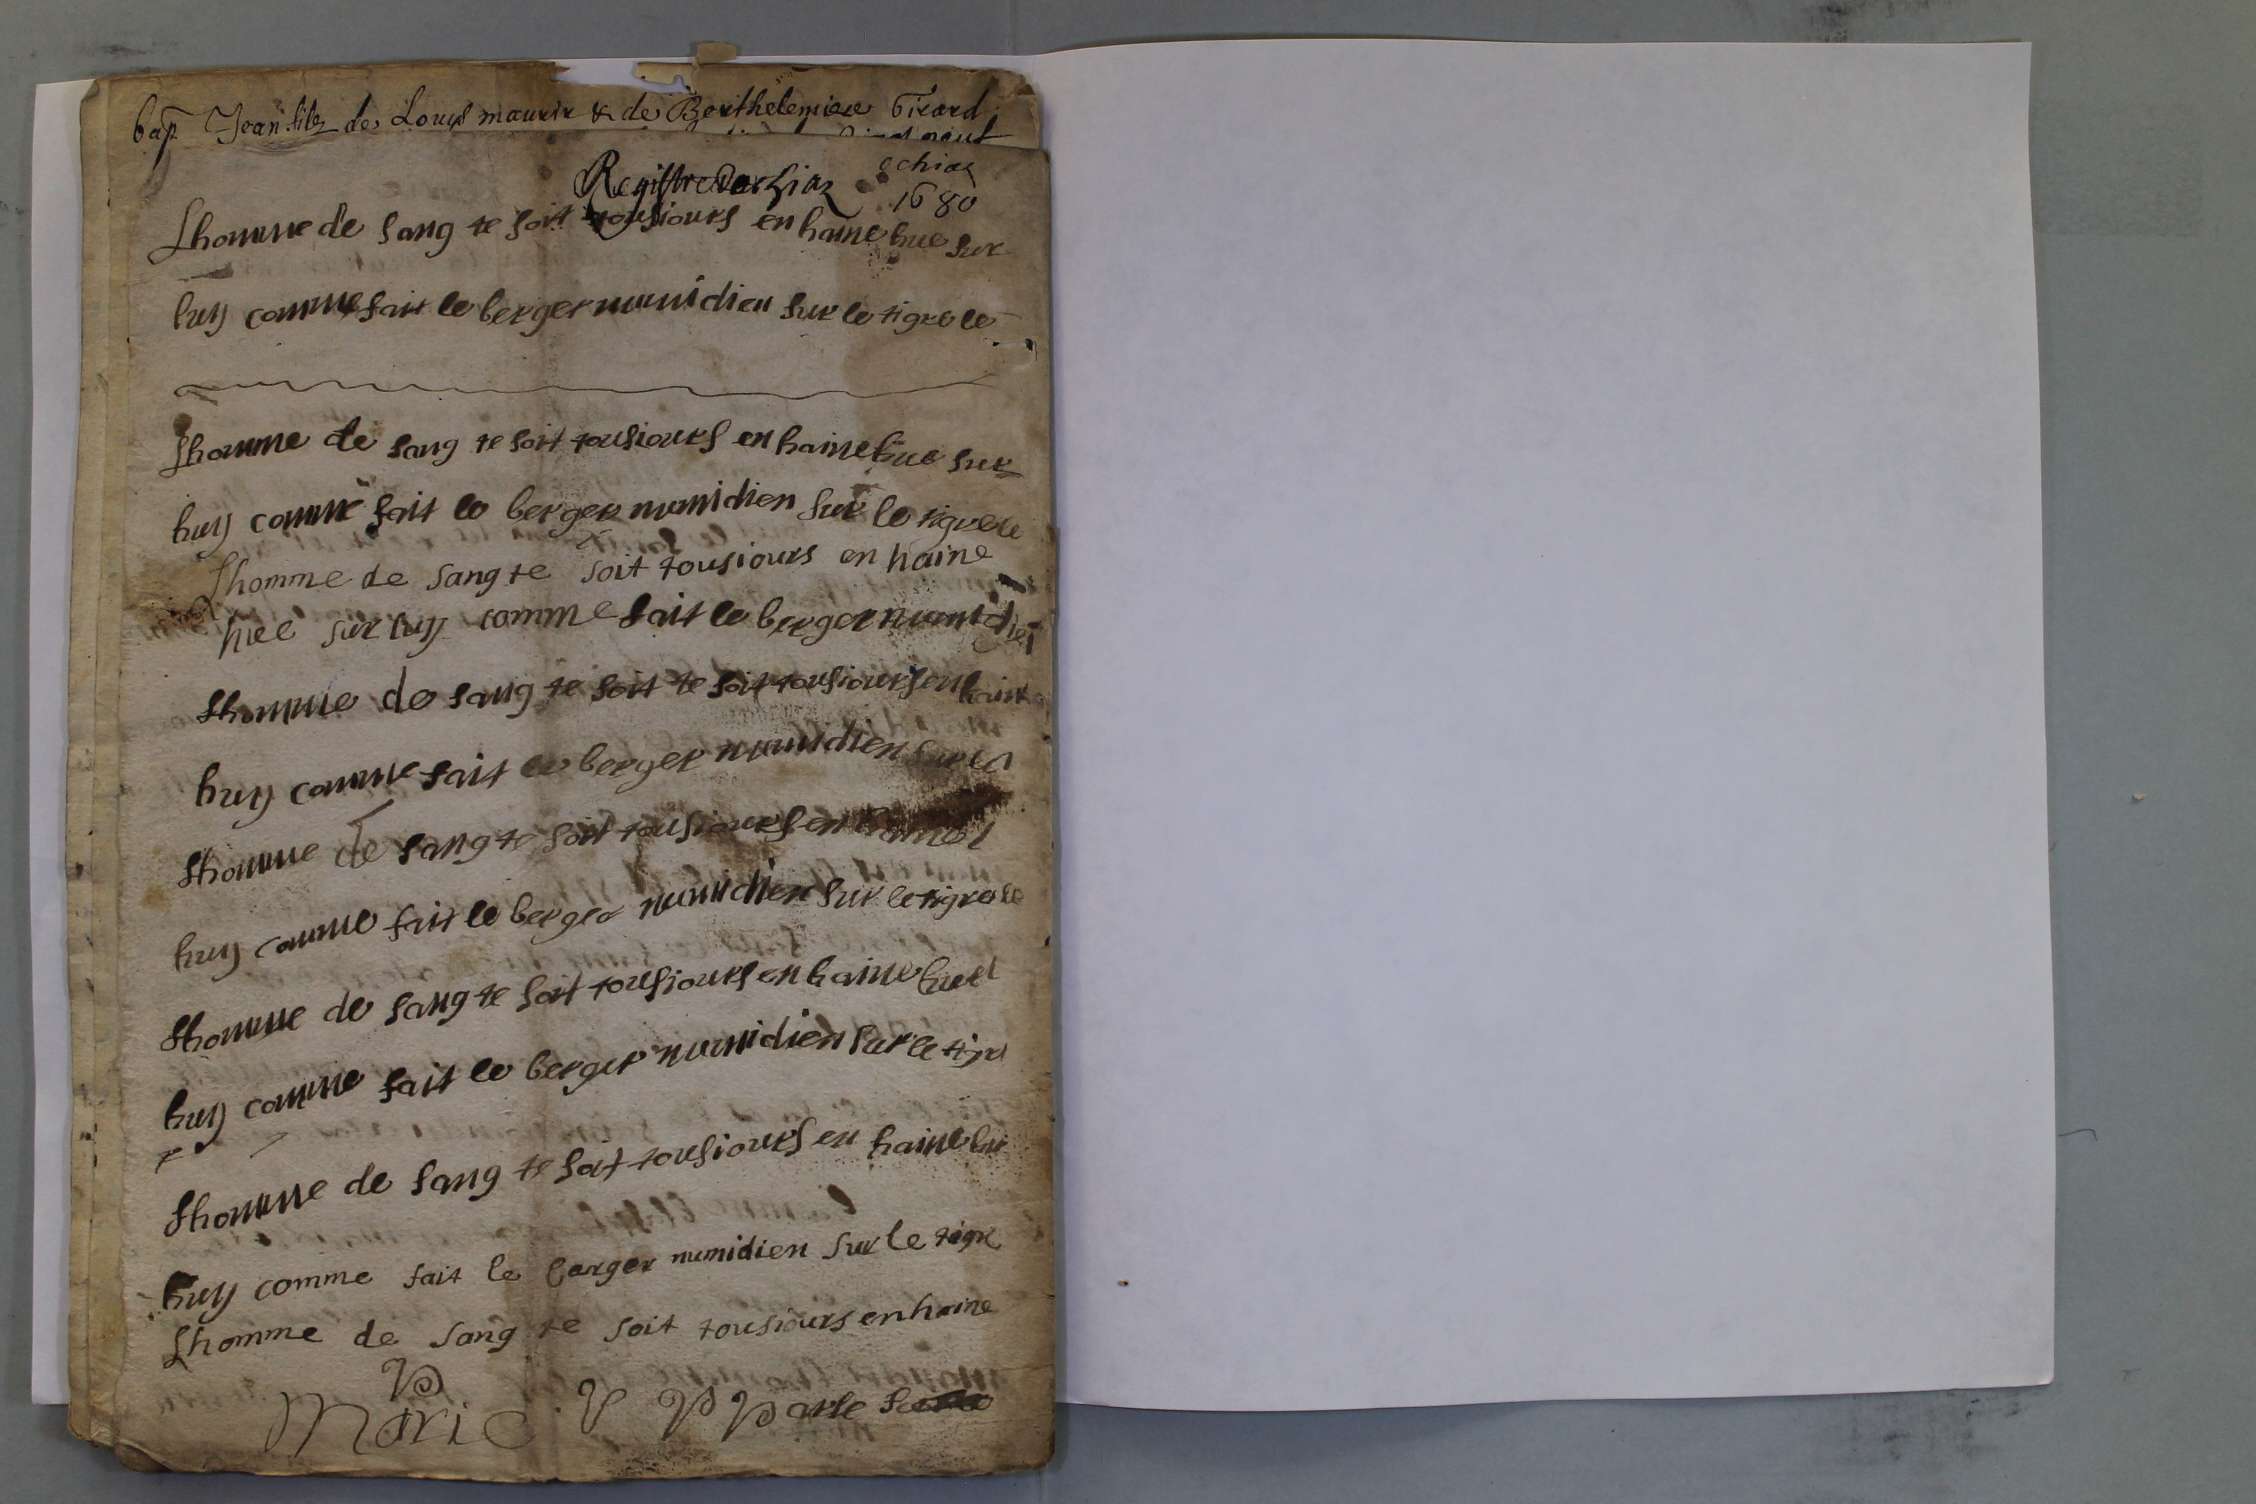 bap Jean filz de Louys maurin & de Berthelemiere Girard
Registre dechiaz
echiaz
1680
Lhomme de sang te soit tousiours en haine hue sur
luy comme fait le berger numidien sur le tigre le
Lhomme de sang te soit tousiours en haine hue sur
luy comme fait le berger numidien sur le tigre le
Lhomme de sang te soit tousiours en haine
huee sur luy comme fait le berger numidien
Lhomme de sang te soit te soit tousiours en haine
luy comme fait le berger numidien sur le
Lhomme de sang te soit tousiours en haine
luy comme fait le berger numidien sur le tigre le
Lhomme de sang te soit tousiours en haine hue
luy comme fait le berger numidien sur le tigre
Lhomme de sang te soit tousiours en haine hue
luy comme fait le berger numidien sur le tigre
Lhomme de sang te soit tousiours en haine
Marie V P Parle